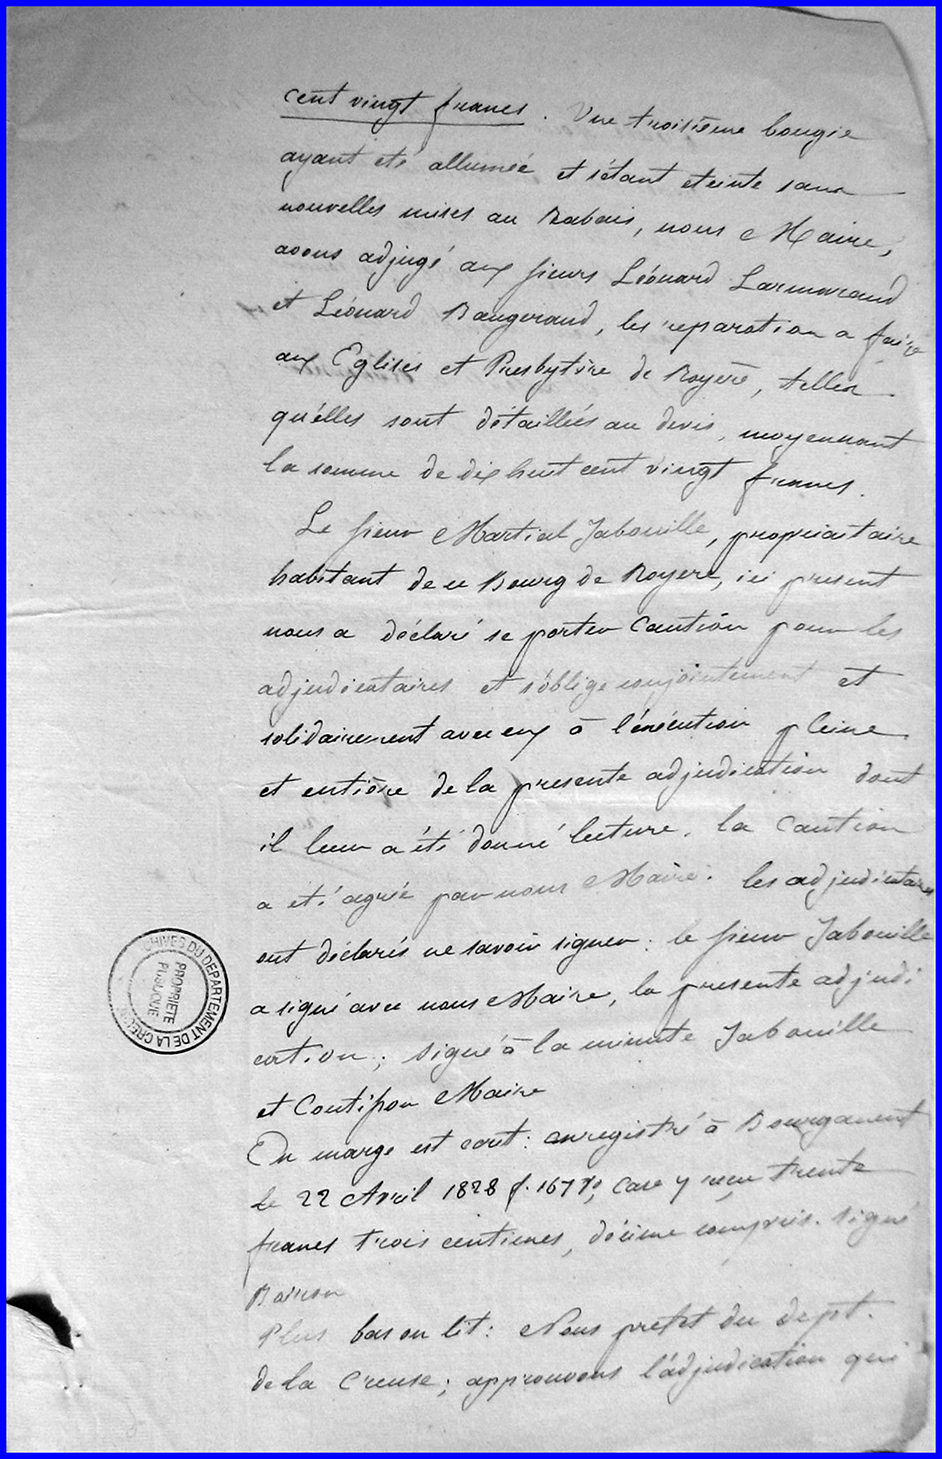 cent vingt francs. Une troisième bougie
ayant eté allumée et s'étant eteinte sans
nouvelles mises au Rabais, nous Maire,
avons adjugé aux sieurs Léonard Larmaraud
et Léonard Baugeraud, les reparation a faire
aux Eglises et Presbytère de Royère, telles
qu'elles sont détaillées au devis, moyennant
la somme de dix huit cent vingt francs.
Le sieur Martial Jabouille, propriaitaire
habitant de ce Bourg de Royere, ici present
nous a déclaré se porter Caution pour les
adjudicataires et s'oblige conjointement et
solidairement avec eux à l'éxécution pleine
et entière de la presente adjudication dont
il leur a été donné lecture. la Caution
a eté agrée par nous Maire. les adjudicataires
ont déclarés ne savoir signer : le sieur Jabouille
a signé avec nous Maire, la presente adjudi
cation ; signé à la minute Jabouille
et Coutisson Maire
En marge est ecrit : enregistré à Bourganeuf
le 22 Avril 1828 f. 167 Vo, case 7 reçu trente
francs trois centimes, décime compris. signé
Plus bas on lit : Nous prefet du dept.
de la Creuse ; approuvons l'adjudication qui
ARCHIVES DU DEPARTEMENT DE LA CREUSE
PROPRIETE
PUBLIQUE